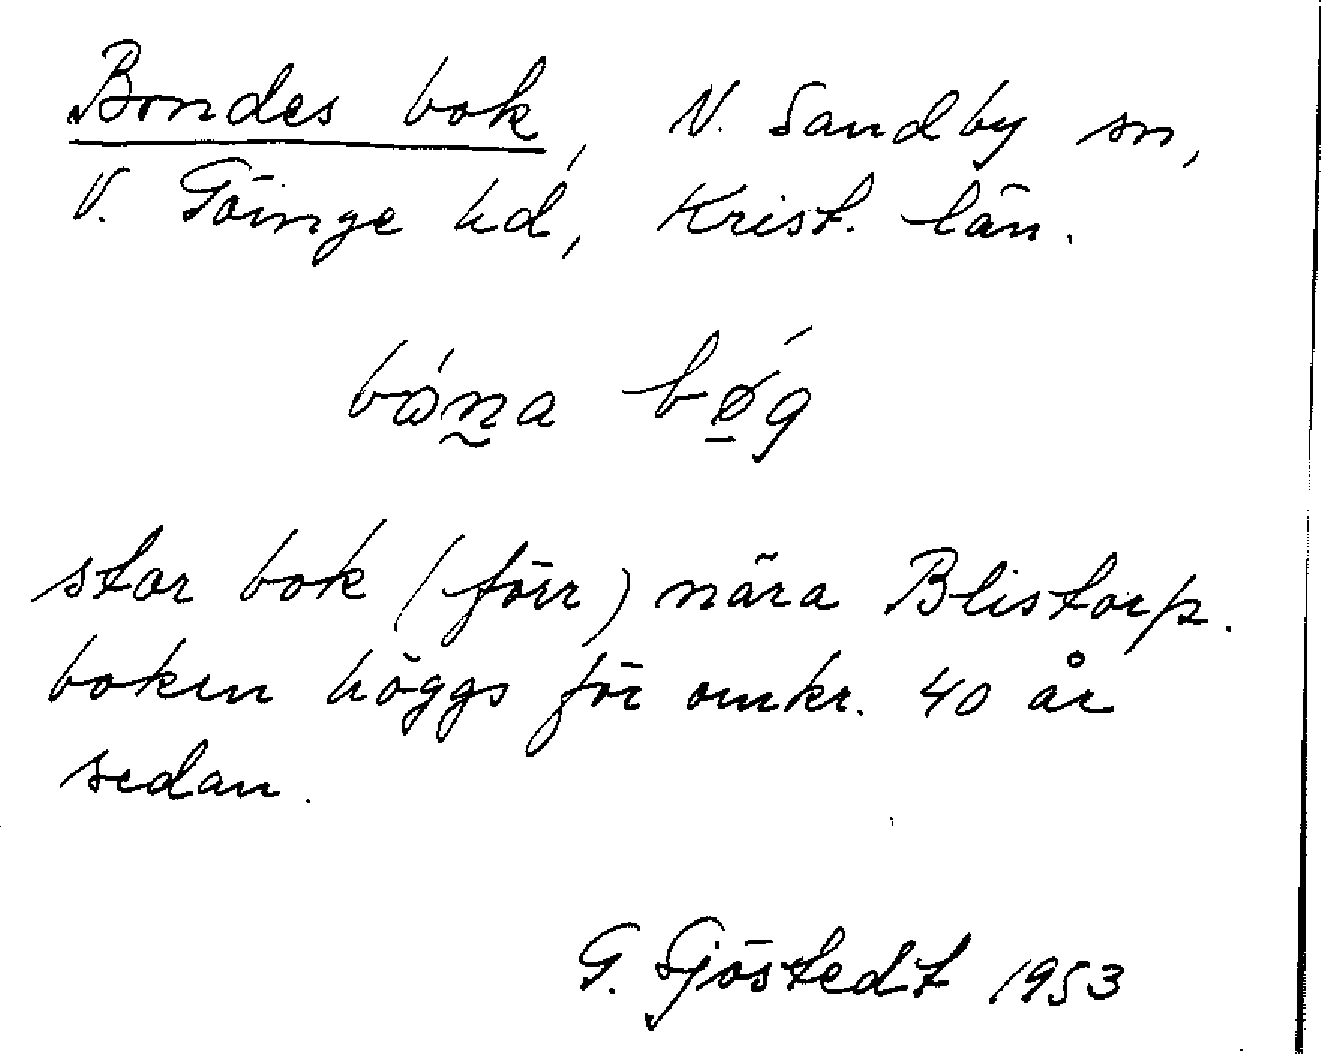 Bondes bok, N. Sandby sn,
V. Göinge hd, Krist. län.
bón̰a bǿ̠g
stor bok (förr) nära Blistorp.
boken höggs för omkr. 40 år
sedan.
G. Sjöstedt 1953